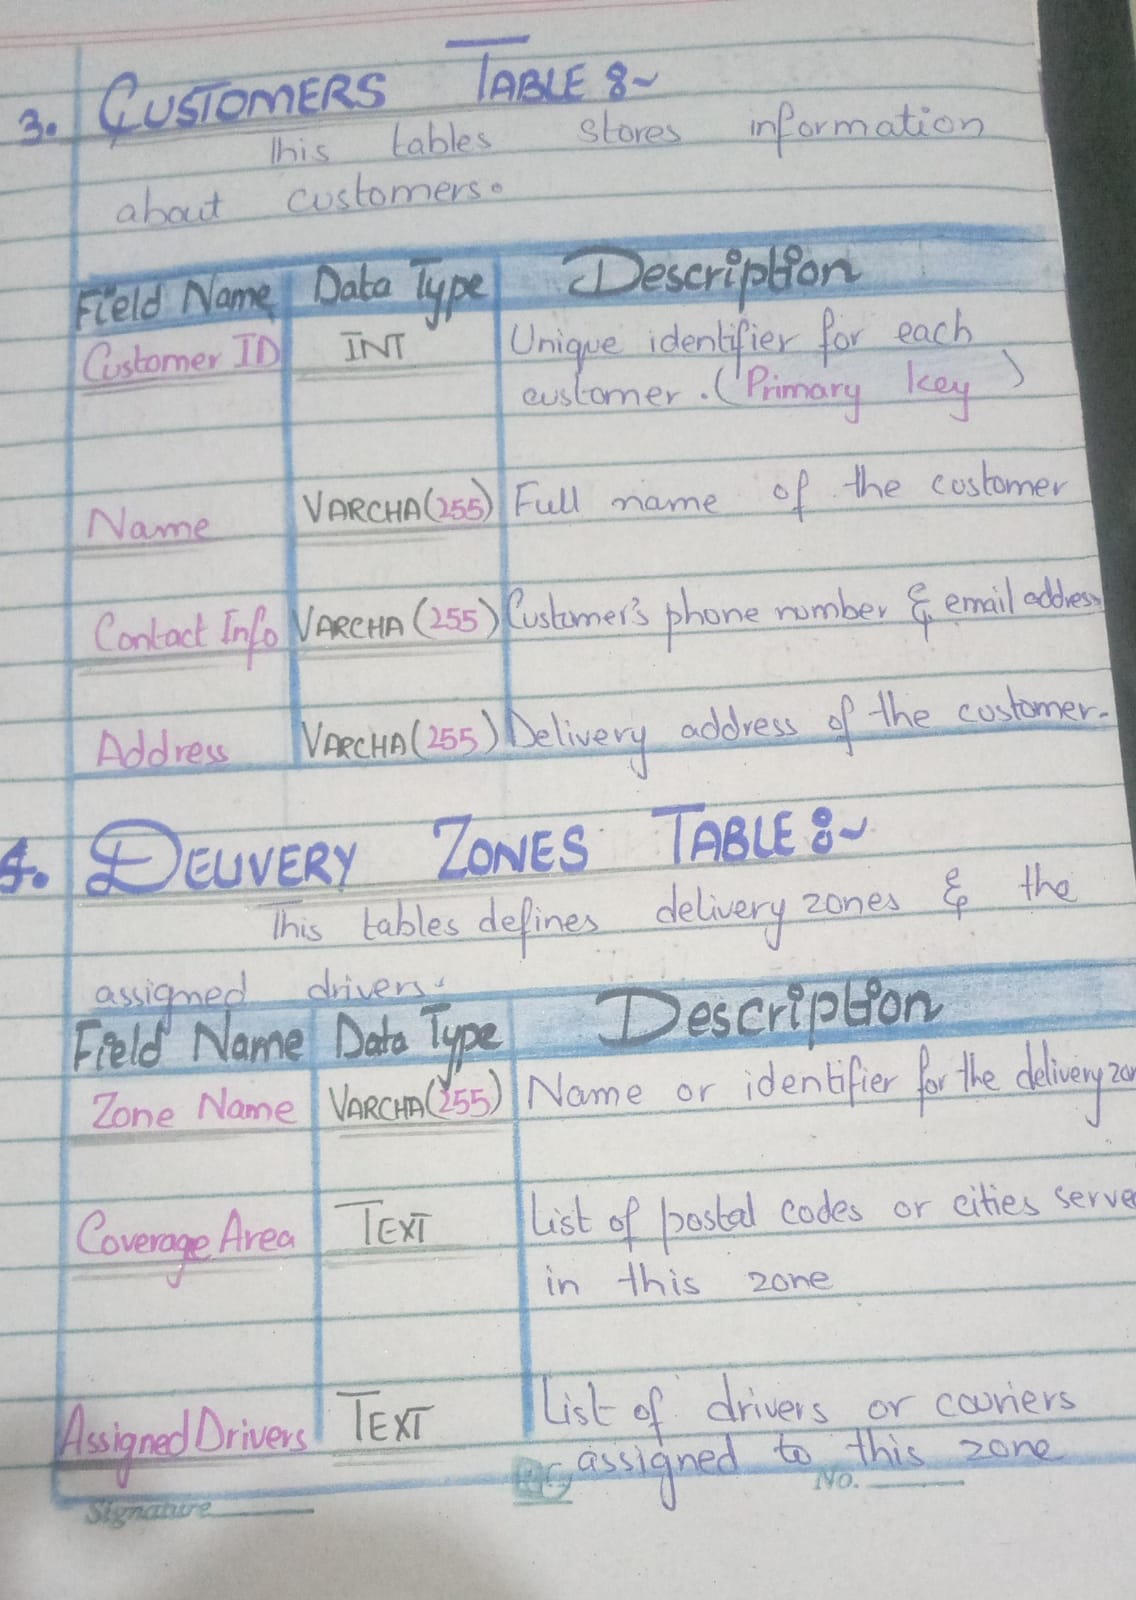 3. CUSTOMERS TABLE :~
This tables stores information
about customers.
Field Name Data Type Description
Customer ID INT Unique identifier for each
customer. (Primary key)
Name VARCHA(255) Full name of the customer
Contact Info VARCHA (255) Customer's phone number & email address
Address VARCHA(255) Delivery address of the customer.
4. DELIVERY ZONES TABLE :~
This tables defines delivery zones & the
assigned drivers.
Field Name Data Type Description
Zone Name VARCHA(255) Name or identifier for the delivery zon
Coverage Area TEXT List of postal codes or cities serve
in this zone
Assigned Drivers TEXT List of drivers or couriers
assigned to this zone
Signature No.